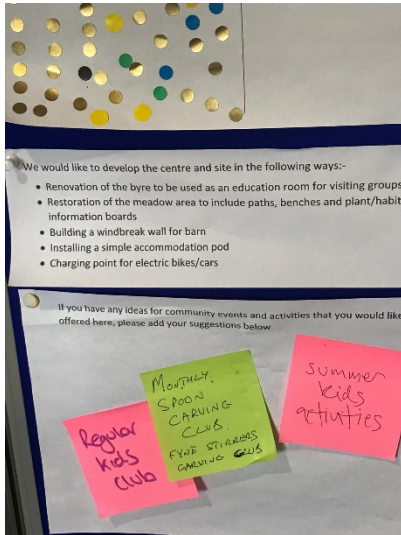 We would like to develop the centre and site in the following ways:-
• Renovation of the byre to be used as an education room for visiting groups
• Restoration of the meadow area to include paths, benches and plant/habit
information boards
• Building a windbreak wall for barn
• Installing a simple accommodation pod
• Charging point for electric bikes/cars
If you have any ideas for community events and activities that you would like
offered here, please add your suggestions below
MONTHLY.
SPOON
CARVING
CLUB.
FYNE STIRRERS
CARVING CLUB
Regular
Kids
Club
Summer
kids
activities